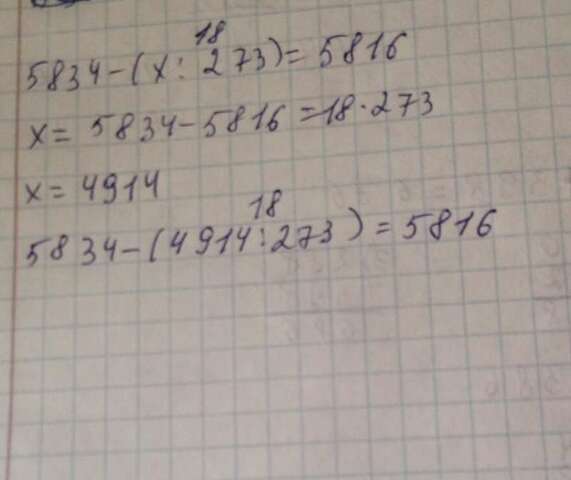 18
5834-(x:273)=5816
x=5834-5816=18·273
x=4914
18
5834-(4914:273)=5816